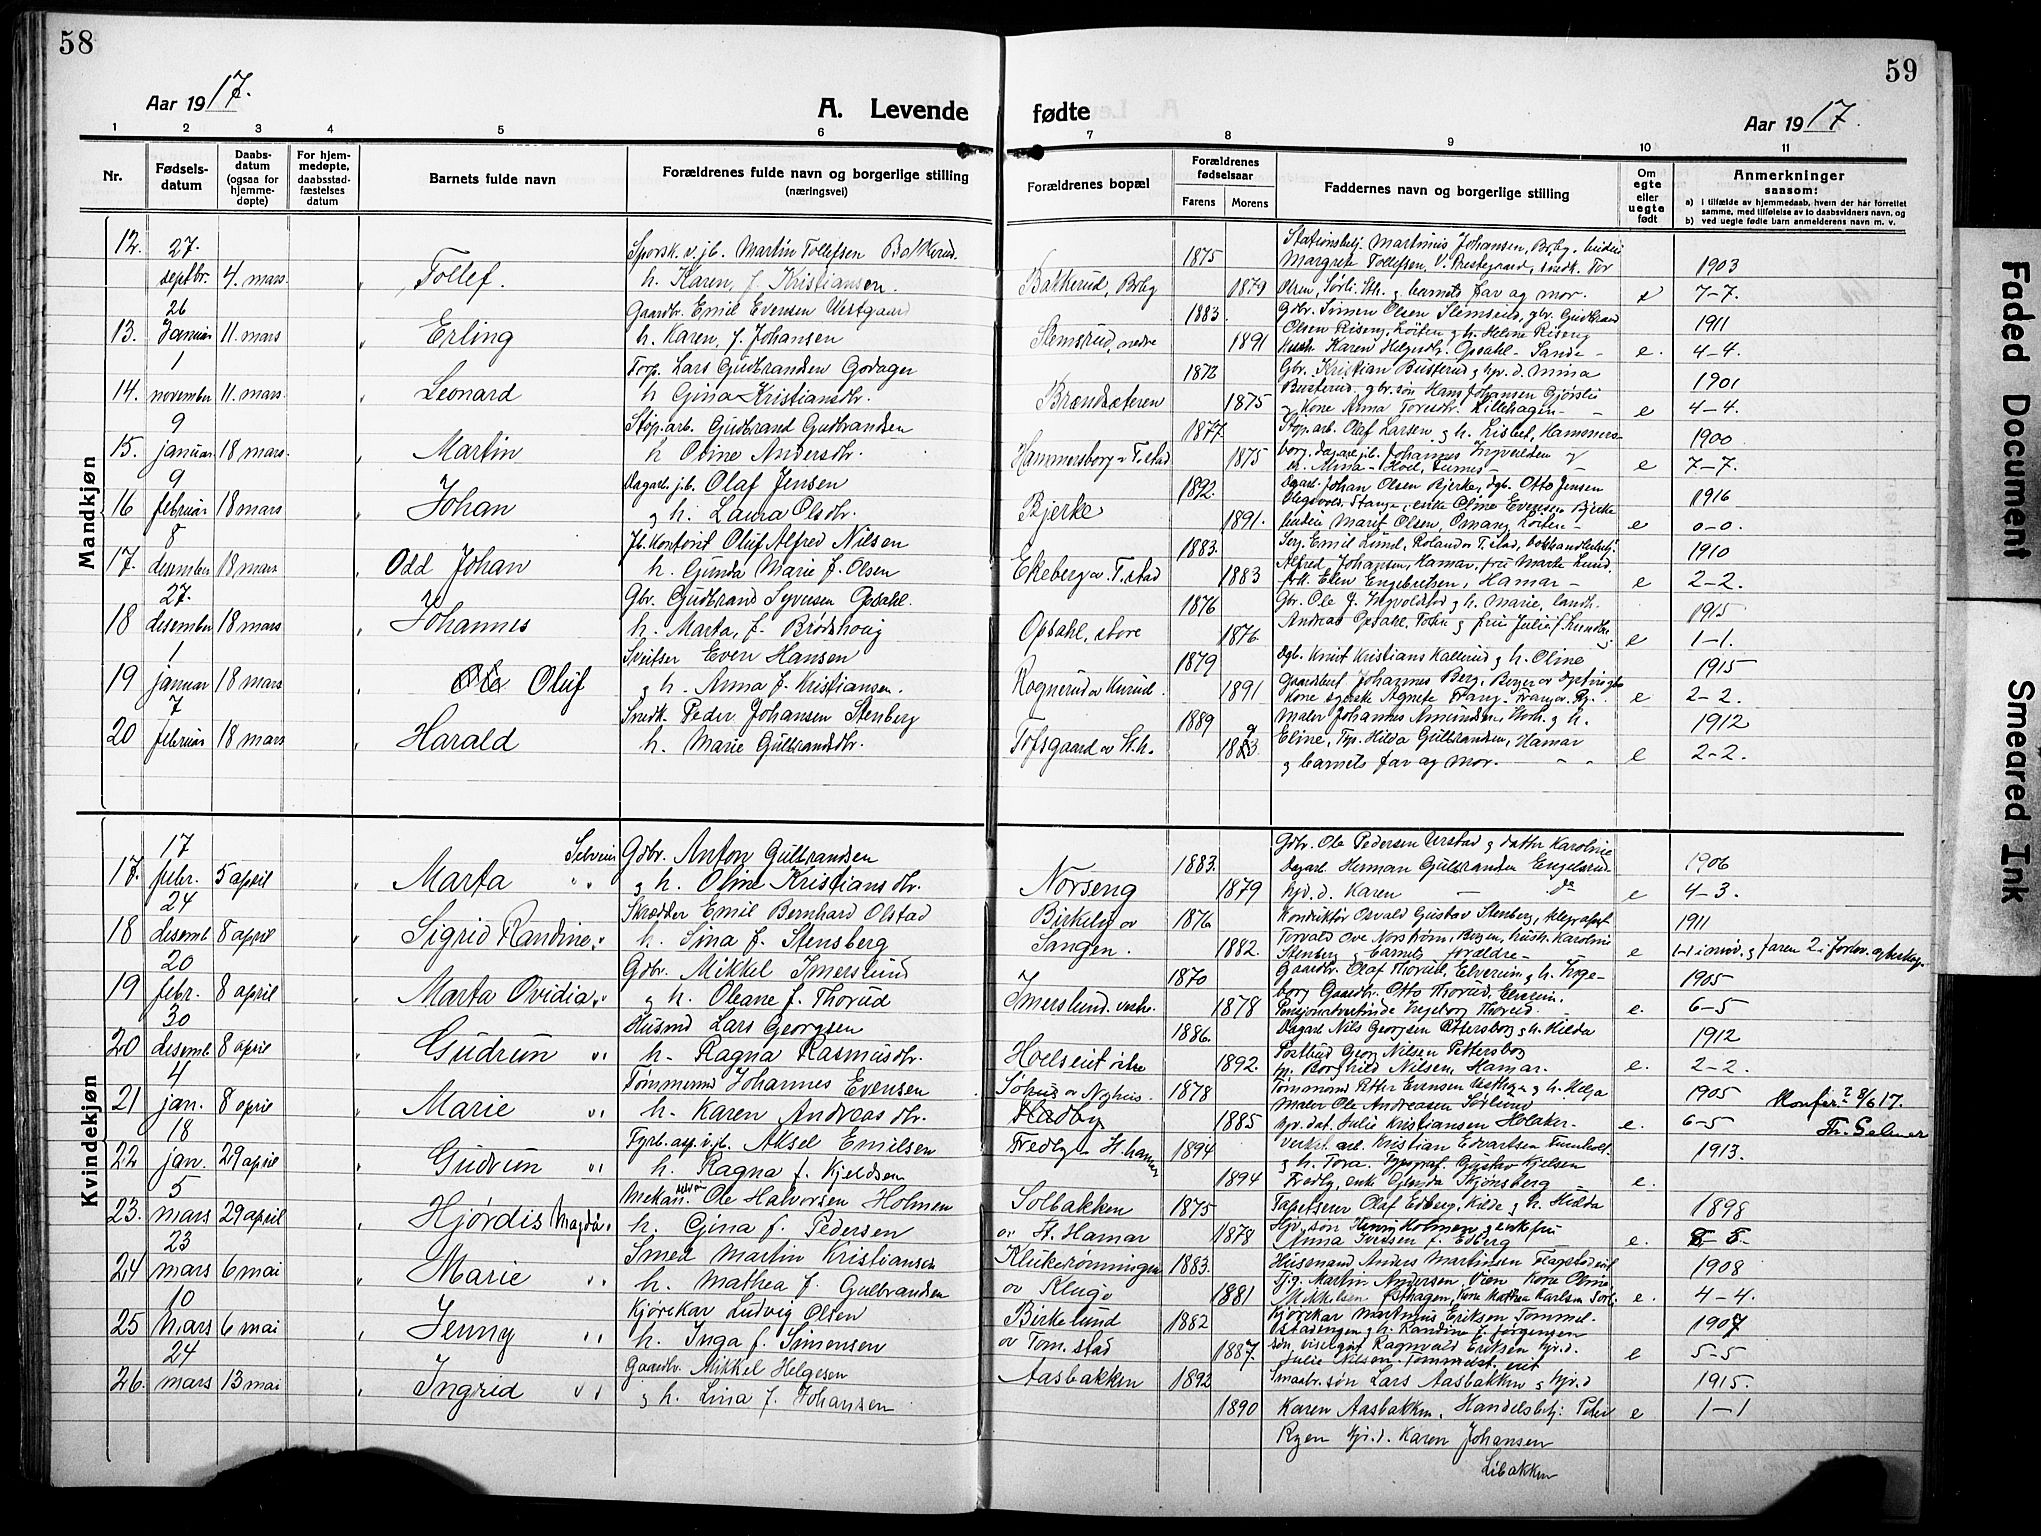 58
59
Aar 1917.
A. Levende
fødte
Aar 1917.
1 2 3 4 5 6 7 8 9 10 11
Nr.
Fødsels-
datum
Daabs-
datum
(ogsaa for
hjemme-
døpte)
For hjem-
medøpte,
daabsstad-
fæstelses
datum
Barnets fulde navn
Forældrenes fulde navn og borgerlige stilling
(næringsvei)
Forældrenes bopæl
Forældrenes
fødselsaar
Farens Morens
Faddernes navn og borgerlige stilling
Om
egte
eller
uegte
født
Anmerkninger
saasom:
a) i tilfælde av hjemmedaab, hvem der har forrettet
samme, med tilføielse av to daabsvidners navn, og
b) ved uegte fødte barn anmelderens navn m. v.
Mandkjøn
12. 27. septbr. 4. mars Tollef. Sporsk. v. jb. Martin Tollefsen Bakkerud.
h. Karen, f. Kristiansen. Bakkerud, Brbg 1875 1879
Stationsbetj. Martinius Johansen, Brbg.
Margrete Tollefsen, V. Prestegaard, snedk. Tor
Olsen, Sørli. Sth. g barnets far og mor. 1903 7-7.
13. 26 Januar 11. mars Erling Gaardbr. Emil Evensen Vestgaard
h. Karen, f. Johansen Slemsrud, nedre 1883. 1891
Gbr. Simen Olsen Slemsrud, gbr. Gudbrand
Olsen Riseng, Løiten g h. Helene Riseng
Karen Helgesdtr. Opsahl- Sande - e. 1911 4-4.
14. 1 november 11. mars Leonard Torp. Lars Gudbrandsen Godager
h Gina Kristiansdtr. Brændsæteren 1872 1875
Gbr. Kristian Busterud g hjv. d. Mina
Busterud, gbr. søn Hans Johansen Gjørsli
g Kone Anna Toresdtr. Lillehagen - e 1901 4-4.
15. 9 januar 18 mars. Martin Støp.arb. Gudbrand Gudbrandsen
h Oline Andersdtr. Hammersborg v T.stad 1877. 1875
Støp.arb. Olaf Larsen g h. Lisbet, Hammers-
borg, dagarb. jb. Johannes Ingvaldsen g
Anna - Hoel, Furnes - e 1900 7-7.
16 9 februar 18 mars Johan Dagarb. jb. Olaf Jensen
g h. Laura Olsdtr. Bjerke 1892. 1891.
Dagarb. Johan Olsen Bjerke, dgb. Otto Jensen
Stange, enke Oline Evensen Bjerke
Marit Olsen, Omang, Løiten - e 1916 0-0.
17. 8 desember 18 mars Odd Johan Jb. kontorist Oluf Alfred Nilsen
h. Gunda Marie f. Olsen Ekeberg v. T.stad 1883. 1883
Serg. Emil Lund, Roland v T.stad, bokhandlerbetj.
Alfred Johansen, Hamar, fru Marte Lund.
frk. Elen Engebretsen, Hamar - e 1910 2-2.
18 27. desember 18 mars Johannes Gbr. Gudbrand Syversen Opsahl.
h. Marta, f. Brodshoug Opsahl, store 1876 1876
Gbr. Ole J. Ingvoldstad g h. Marie, landh.
Andreas Opsahl, Toten g frue Julie f. Lundby e 1915 1-1.
19 1 januar 18 mars Oluf Sveitser Even Hansen
g h. Anna f. Kristiansen. Rognerud v Kurud. 1879 1891
Dgb. Knut Kristians Kallerud g h. Oline
Johannes Berg, Berger
Kone Agnete Frang - e 1915 2-2.
20 7 februar 18 mars Harald Snedk. Peder Johansen Stenberg
h. Marie Gulbrandsdtr. Tofsgaard v St.h. 1889
Maler Johannes Amundsen, Storh. g h.
Eline, Tp. Hilda Gulbrandsen, Hamar
g barnets far og mor. - e 1912 2-2.
Kvindekjøn
17. 17 febr. 5 april Marta Gdbr. Anton Gulbrandsen
g h. Oline Kristiansdtr. Norseng 1883. 1879
Gdbr. Ole Pedersen Urstad g datter Karoline
Dagarb. Herman Gulbrandsen Engelsrud
hjv. d. Karen - do e 1906 4-3.
18 24 desemb. 8 april Sigrid Randine Skrædder Emil Bernhard Olstad
h. Sina f. Stensberg Birkely ov Sangen. 1876 1882.
Konduktør Osvald Gustav Stenberg, telegrafist
Torvald Ove Norstrøm, Bergen, hustr. Karoline
Stenberg g barnets forældre - e 1911
19 20 febr. 8 april Marta Ovidia Gdbr. Mikkel Imerslund
g h. Oleane f. Thorud Imerslund. vestre. 1870 1878
Gaardbr. Olaf Thorud, Elverum g h. Inge-
borg, Gaardbr. Otto Thorud, Elverum.
Pensjonatvertinde Ingeborg Thorud. e. 1905 6-5
20 30 desemb 8 april Gudrun Husmd Lars Georgsen
h. Ragna Rasmusdtr. Hoelseit østre 1886. 1892.
Dagarb. Nils Georgsen Pettersborg g h. Hilda
Postbud Georg Nilsen Pettersborg
tp. Borghild Nilsen, Hamar. e. 1912 2-2.
21 4 jan. 8 april Marie Tømmermd Johannes Evensen
h. Karen Andreasdtr. Nyhus. 1878 1885
Tømmermd Petter Evensen Vesthagen g h. Helga
Maler Ole Andreasen Sørlund
hjv. dat. Julie Kristiansen Holaker - e. 1905 6-5
22 18 jan. 29 april Gudrun Fyrb. asp. v. jb. Aksel Emilsen
h. Ragna f. Kjeldsen Fredly - St. hamar 1894 1894
verkst. arb. Kristian Edvartsen
g h. Tora. Typograf. Gustav Kjelsen
Fredly, enke Gunda Skjønsberg e. 1913.
23. 5 mars 29 april Hjørdis Magda Mekan. Ole Halvorsen Holmen
h. Gina f. Pedersen Solbakken ov St. Hamar 1875 1878
Tapetserer Olaf Edberg, Kilde g h. Hilda
Hjv. søn Henry Holmen g enkefru
Anna Iversen f. Edberg - e. 1898 8-8.
24 23 mars 6 mai Marie Smed Martin Kristiansen
h. Mathea f. Gulbrandsen Klukerønningen ov Kluge 1883. 1881
Husmand Anders Martinsen Flagstadeiet
Tjg. Martin Andersen, Vien Kone Oline
Mikkelsen e. 1908 4-4.
25 10 Mars 6 mai Jenny Kjørekar Ludvig Olsen
h. Inga f. Simensen Birkelund ov Tom. stad 1882 1887.
Kjørekar Martinius Eriksen Tommel-
stadengen g h. Randine f. Jørgensen
søn, viselgut Ragnvald Eriksen hjv. d.
Julie Nilsen Tommelst. eiet e 1907 5-5
26. 24 mars 13 mai Ingrid Gaardbr. Mikkel Helgesen
g h. Lina f. Johansen Aasbakken 1892 1890
Smaabr. søn Lars Aasbakken g hjv. d
Karen Aasbakken, Handelsbetj. Peter
Ryen hjv. d. Karen Johansen
Libakken e 1915. 1-1
Faded Document
Smeared Ink